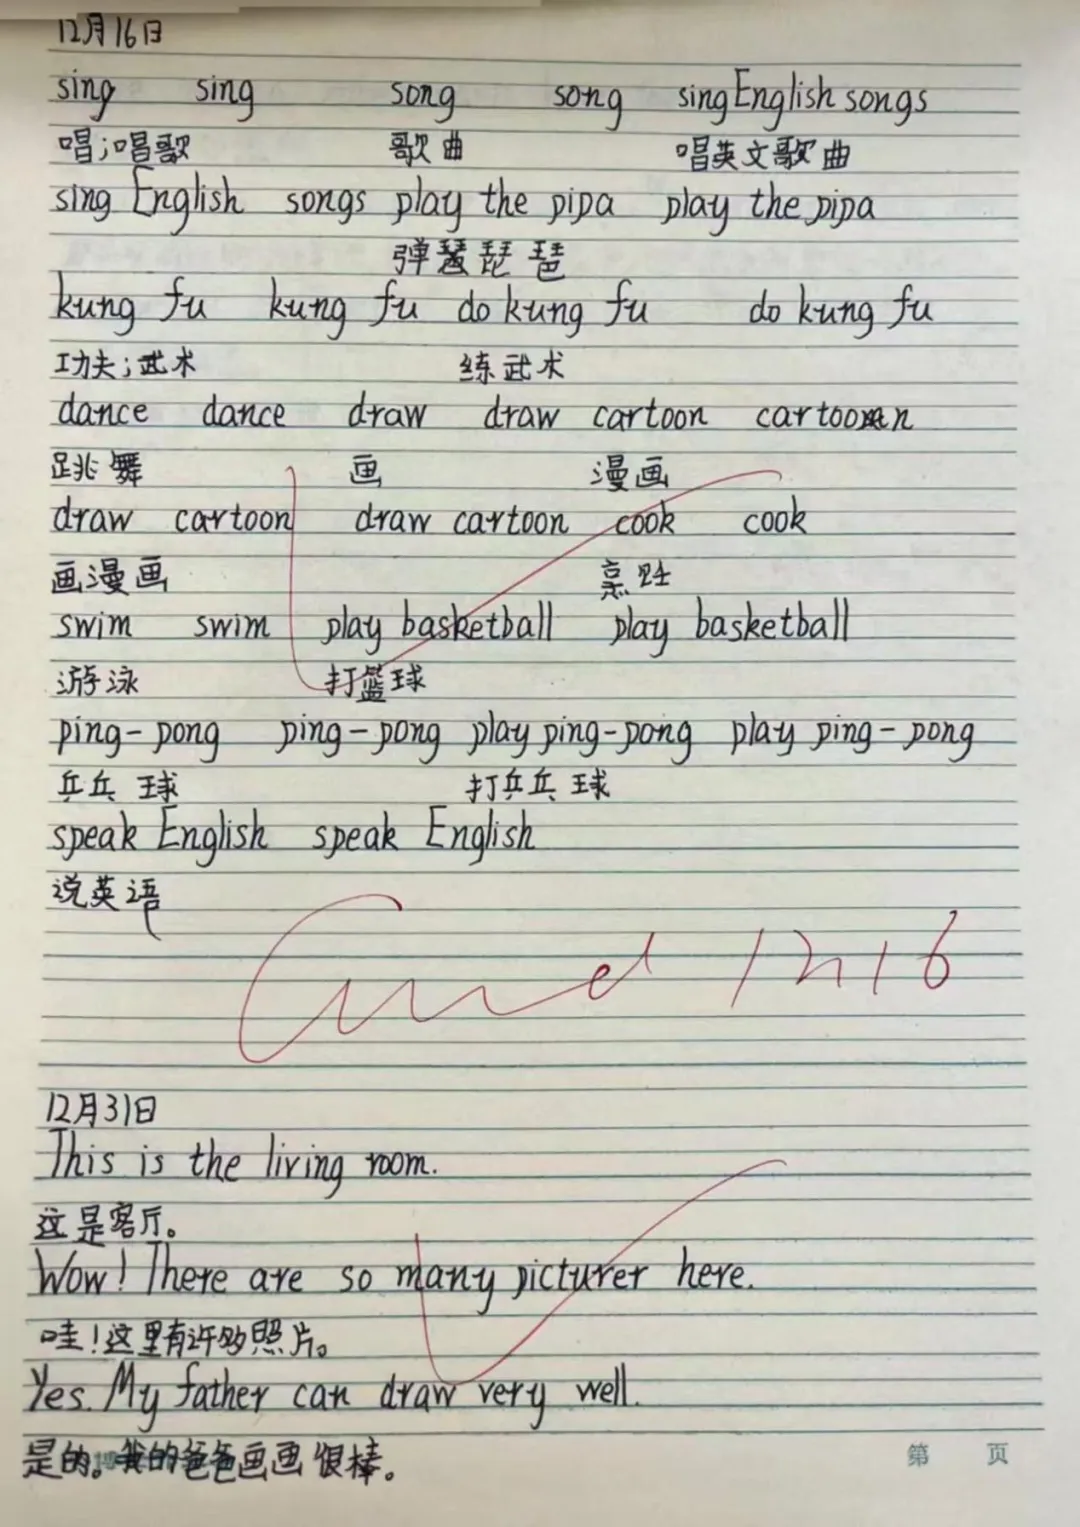 12月16日
sing sing song song sing English songs
唱;唱歌 歌曲 唱英文歌曲
sing English songs play the pipa play the pipa
弹琵琶
kung fu kung fu do kung fu do kung fu
功夫;武术 练武术
dance dance draw draw cartoon cartoon
跳舞 画 漫画
draw cartoon draw cartoon cook cook
画漫画 烹饪
swim swim play basketball play basketball
游泳 打篮球
ping-pong ping-pong play ping-pong play ping-pong
乒乓球 打乒乓球
speak English speak English
说英语
1216
12月31日
This is the living room.
这是客厅。
Wow! There are so many picturer here.
哇!这里有许多照片。
Yes. My father can draw very well.
是的。我的爸爸画画很棒。
第 页